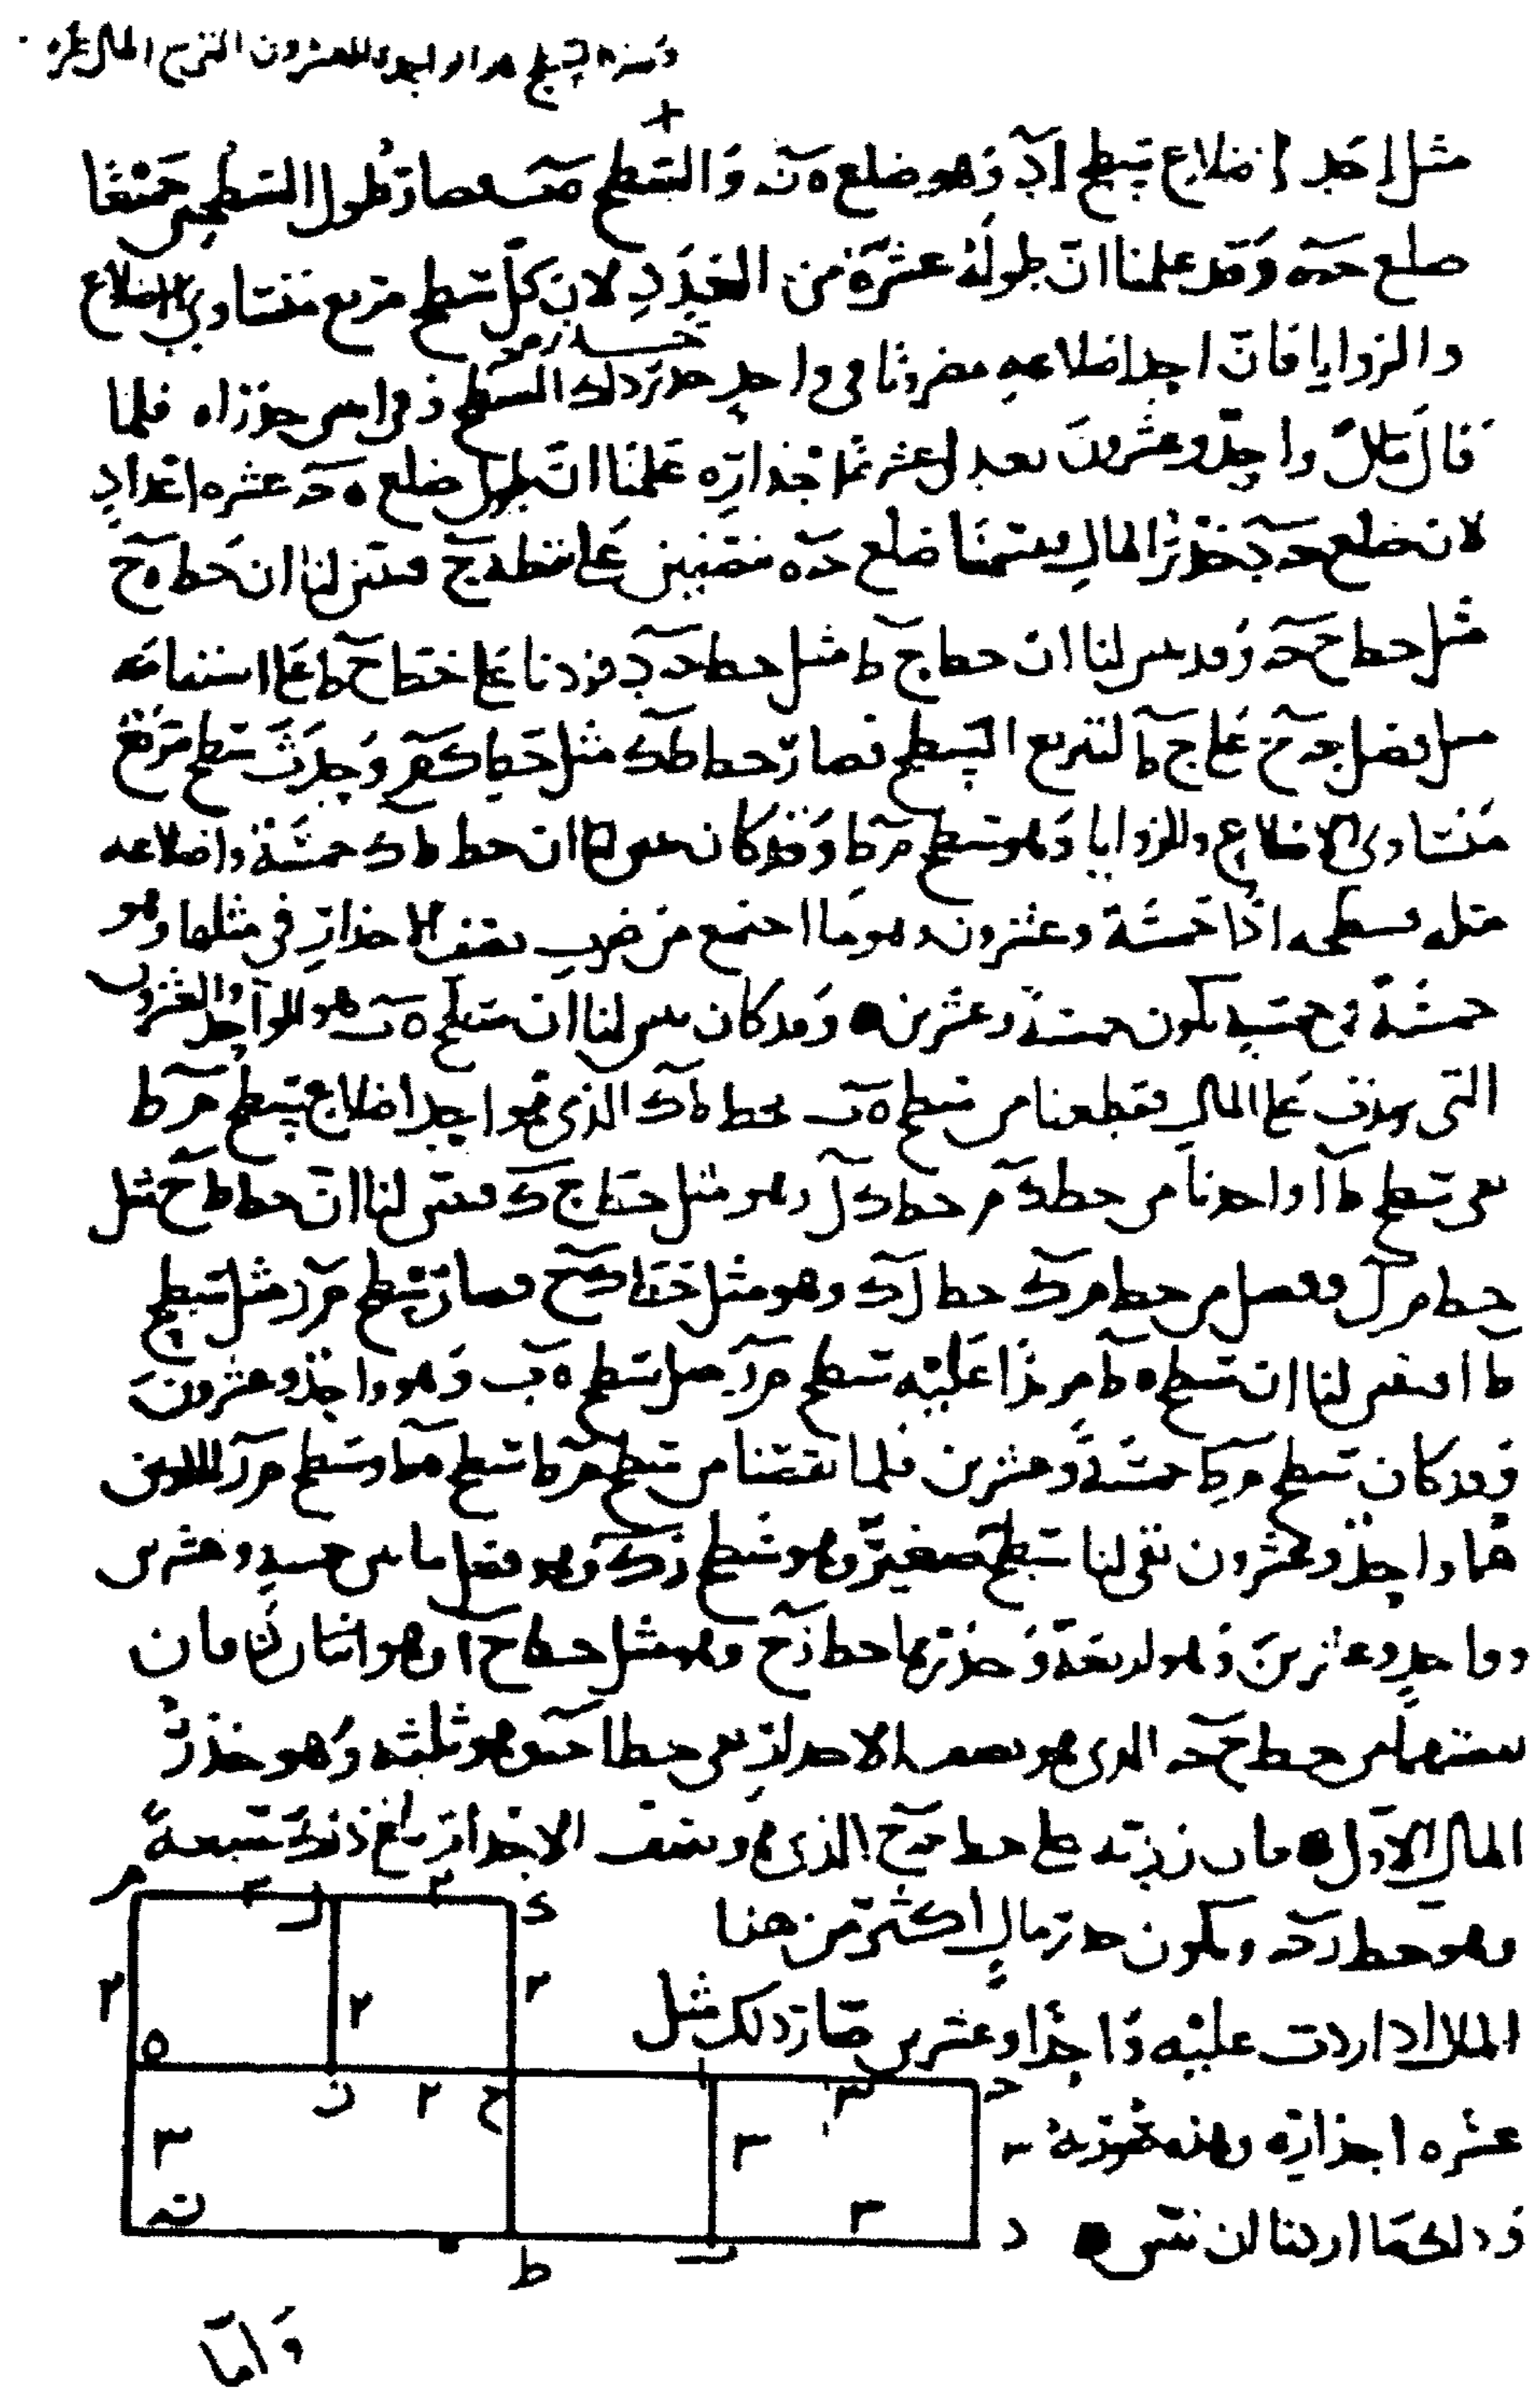 مثل احد اضلاع سطح اد وهو ضلع ه ن والسطح فصار طول السطحين جميعا
ضلع جه وقد علمنا ان طوله عشرة من العدد لان كل سطح مربع متساوي الاضلاع
والزوايا فان احد اضلاعه مضروبا في واحد جذر ذلك السطح وفي اثنين جذراه فلما
قال مال واحد وعشرون يعدل عشرة اجذاره علمنا ان طول ضلع ه ج عشرة اعداد
لان ضلع جد جذر المال فقسمنا ضلع جه بنصفين على نقطة ح فتبين لنا ان خط ه ح
مثل خط ح ج وقد تبين لنا ان خط ح ط مثل خط ج د فزدنا على خط ح ط على استقامته
مثل فضل ج ح على ح ط لتربع السطح فصار خط ط ك مثل خط ك م وحدث سطح مربع
متساوي الاضلاع والزوايا وهو سطح م ط وقد كان تبين لنا ان خط ط ك خمسة واضلاعه
مثله فسطحه اذا خمسة وعشرون وهو ما اجتمع من ضرب نصف الاجذار في مثلها وهو
خمسة في خمسة يكون خمسة وعشرين وقد كان تبين لنا ان سطح ه ب هو الواحد والعشرون
التي زيدت على المال فقطعنا من سطح ه ب بخط ط ك الذي هو احد اضلاع سطح م ط
بقي سطح ط ا واخذنا من خط ك م خط ك ل وهو مثل خط ح ك فتبين لنا ان خط ط ح مثل
خط م ل وفضل من خط م ك خط ل ك وهو مثل خط ك ح فصار سطح م ر مثل سطح
ط ا فتبين لنا ان سطح ه ط مزيدا عليه سطح م ر مثل سطح ه ب وهو واحد وعشرون
وقد كان سطح م ط خمسة وعشرين فلما نقصنا من سطح م ط سطح ه ط وسطح م ر اللذين
هما واحد وعشرون بقي لنا سطح صغير وهو سطح ر ك وهو فضل ما بين خمسة وعشرين
وواحد وعشرين وهو اربعة وجذرها خط ر ح وهو مثل خط ح ا وهو اثنان فان
نقصتهما من خط ح ج الذي هو نصف الاجذار بقي خط ا ج وهو ثلثة وهو جذر
المال الاول فان زدته على خط ج ح الذي هو نصف الاجذار بلغ ذلك سبعة
وهو خط ر ج ويكون جذر مال اكثر من هذا
المال اذا زدت عليه واحدا وعشرين صار ذلك مثل
عشرة اجذاره وهذه صورته
وذلك ما اردنا ان نبين
م ل ك
٢ ٢ ٢ ٢ ٢
ه ز ح ا ج
٣ ٣ ٣ ٣
ن ط ر د
واما